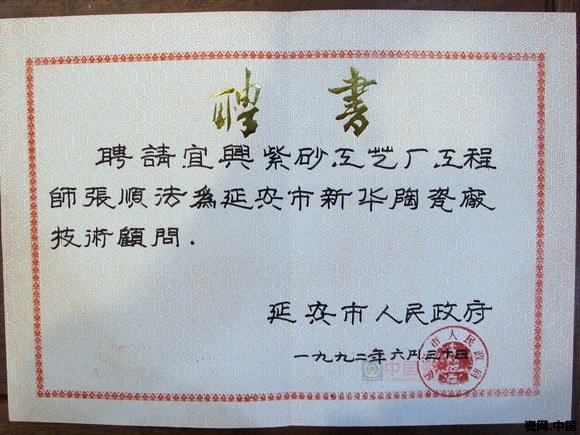 聘書
聘請宜興紫砂工艺厂工程
師張順法為延安市新华陶瓷廠
技術顧問.
延安市人民政府
一九九二年六月三十日
中国
瓷网.中国